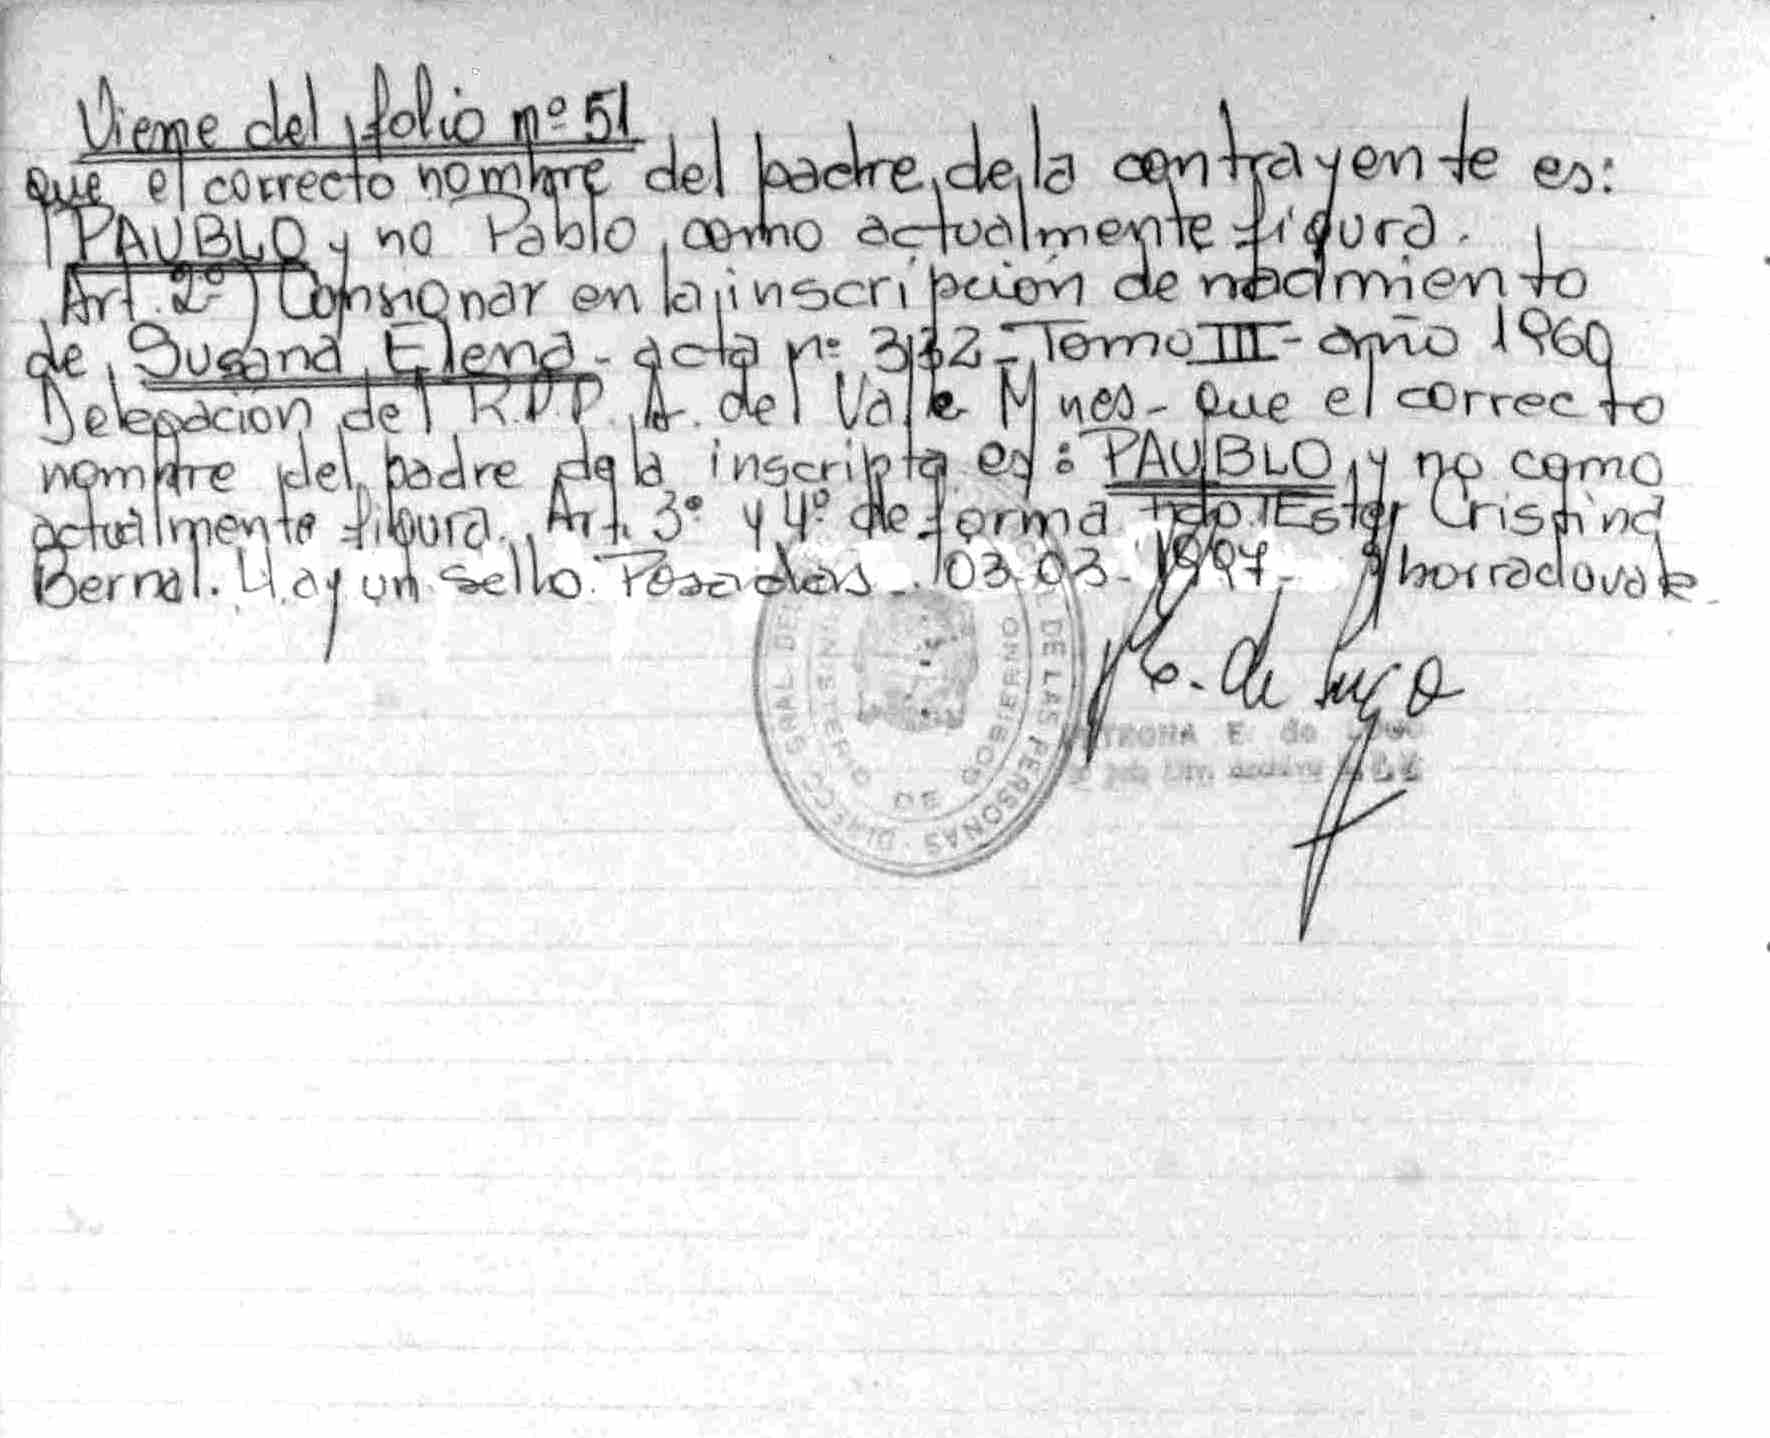 Viene del folio nº 51
que el correcto nombre del padre de la contrayente es:
PAUBLO y no Pablo, como actualmente figura.
Art. 2º) Consignar en la inscripción de nacimiento
de Susana Elena - acta nº 332 - Tomo III - año 1960
Delegación del R.P.P. A. del Valle Mnes - que el correcto
nombre del padre de la inscripta es: PAUBLO, y no como
actualmente figura. Art. 3º y 4º de forma fdo. Ester Cristina
Bernal. Hay un sello. Posadas - 03-03-1997 - borrado vale -
E. de Lugo
DE LAS PERSONAS
MINISTERIO DE GOBIERNO
E. de